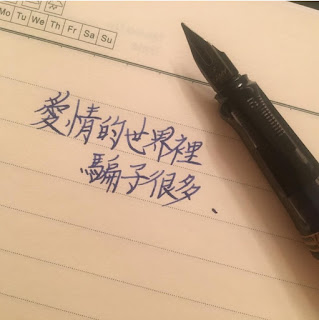 Mo Tu We Th Fr Sa Su
愛情的世界裡
騙子很多、